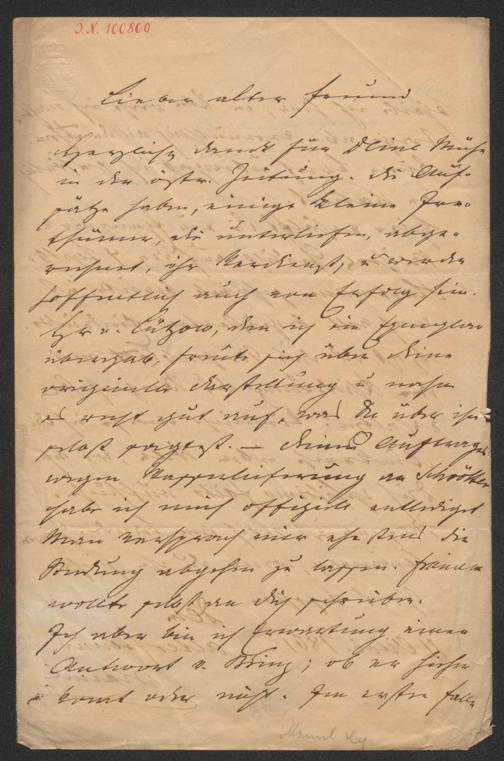 I.N. 100800
Lieber alter Freund
Herzlich Dank für Deine Mühe
in der östr. Zeitung. Die Auf-
sätze haben, einige kleine Irr-
thümer, die unterliefen, abge-
rechnet, ihr Verdienst, u werden
hoffentlich auch von Erfolg sein.
Hr v. Lützow, dem ich ein Exemplar
übergab, freute sich über Deine
originelle Darstellung u nahm
es recht gut auf, was Du über ihn
selbst sagtest. — Deines Auftrages
wegen Kassenlieferung an Schrötter
habe ich mich offiziell entledigt
Man versprach mir ehestens die
Sendung abgehen zu lassen.
wollte selbst an Dich schreiben.
Ich aber bin in Erwartung einer
Antwort v. Prinz; ob er hieher
komt oder nicht. Im ersten Falle